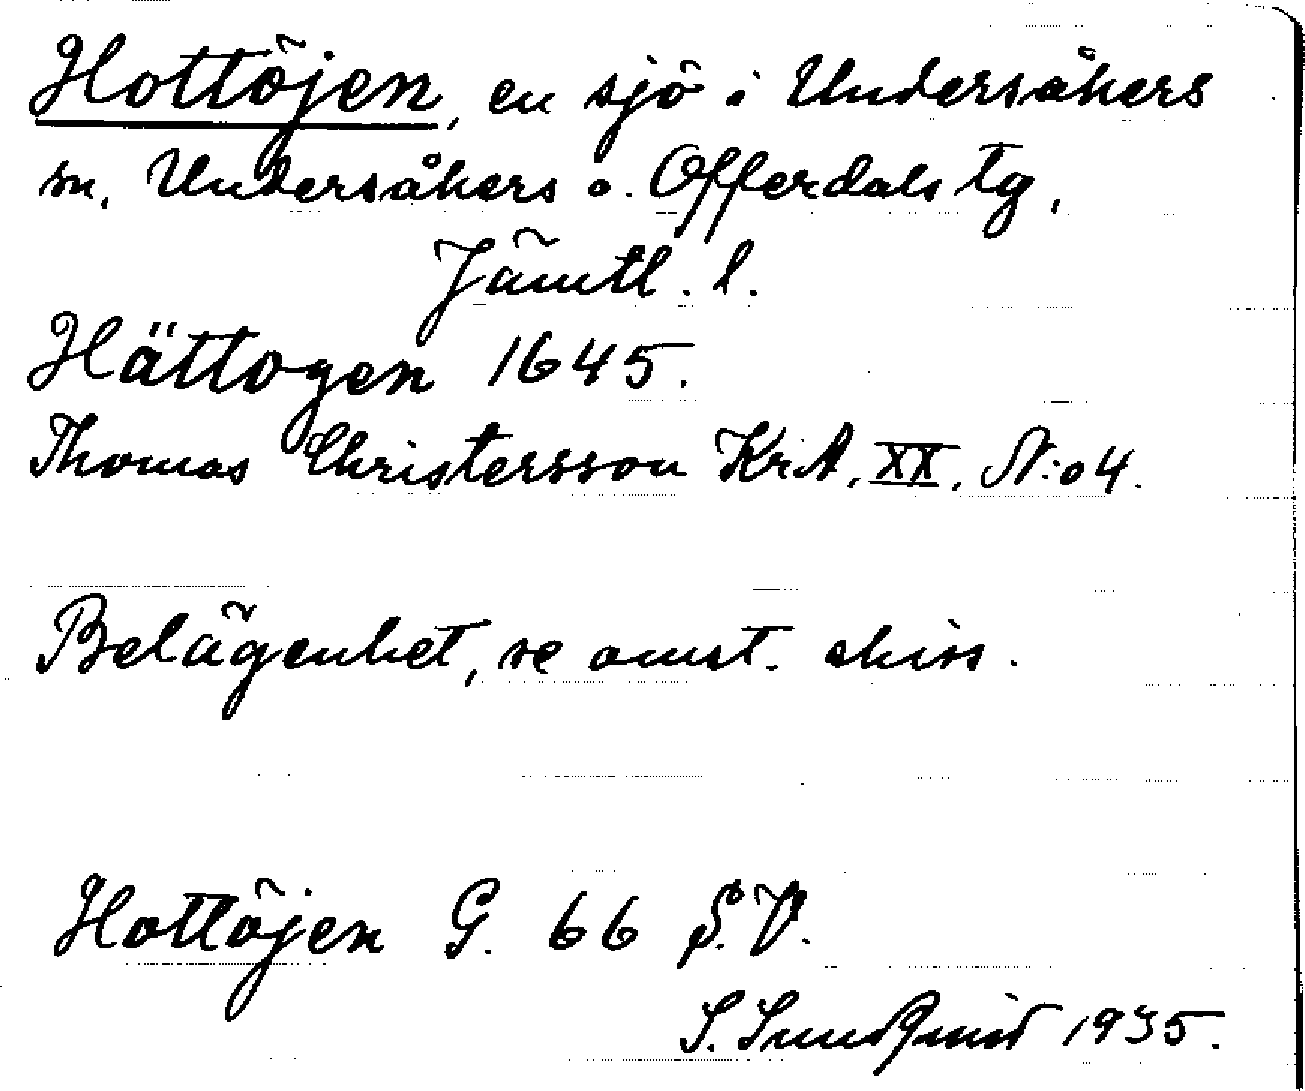 Hottöjen, en sjö i Undersåkers
sn, Undersåkers o. Offerdals tg,
Jämtl. l.
Hättogen 1645.
Thomas Christersson Kr.A. XX. N:o 4.
Belägenhet, se omst. skiss.
Hottöjen G. 66 S.V.
S. Sundqvist 1935.